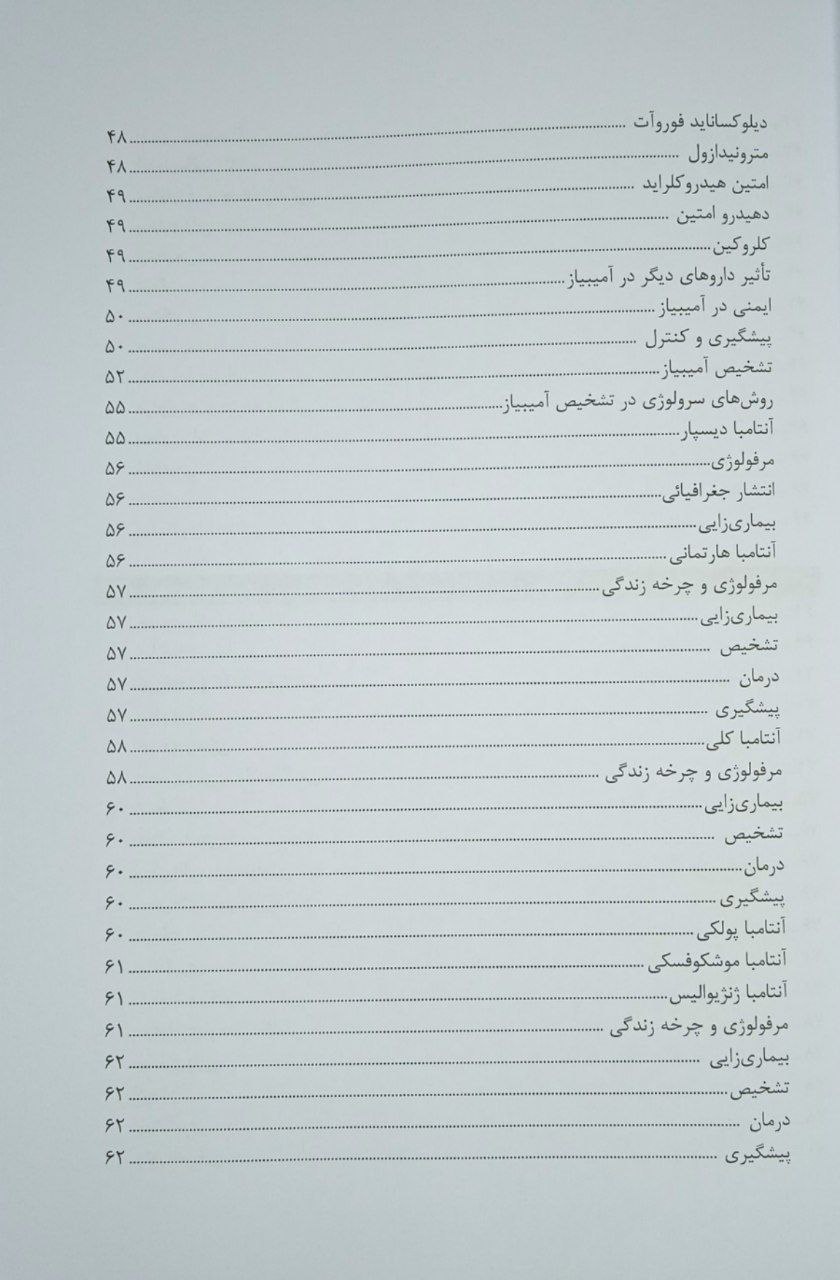 دیلوکساناید فوروآت ........ ۴۸
مترونیدازول ........ ۴۸
امتین هیدروکلراید ........ ۴۹
دهیدرو امتین ........ ۴۹
کلروکین ........ ۴۹
تأثیر داروهای دیگر در آمیبیاز ........ ۴۹
ایمنی در آمیبیاز ........ ۵۰
پیشگیری و کنترل ........ ۵۰
تشخیص آمیبیاز ........ ۵۲
روش‌های سرولوژی در تشخیص آمیبیاز ........ ۵۵
آنتامبا دیسپار ........ ۵۵
مرفولوژی ........ ۵۶
انتشار جغرافیائی ........ ۵۶
بیماری‌زایی ........ ۵۶
آنتامبا هارتمانی ........ ۵۶
مرفولوژی و چرخه زندگی ........ ۵۷
بیماری‌زایی ........ ۵۷
تشخیص ........ ۵۷
درمان ........ ۵۷
پیشگیری ........ ۵۷
آنتامبا کلی ........ ۵۸
مرفولوژی و چرخه زندگی ........ ۵۸
بیماری‌زایی ........ ۶۰
تشخیص ........ ۶۰
درمان ........ ۶۰
پیشگیری ........ ۶۰
آنتامبا پولکی ........ ۶۰
آنتامبا موشکوفسکی ........ ۶۱
آنتامبا ژنژیوالیس ........ ۶۱
مرفولوژی و چرخه زندگی ........ ۶۱
بیماری‌زایی ........ ۶۲
تشخیص ........ ۶۲
درمان ........ ۶۲
پیشگیری ........ ۶۲